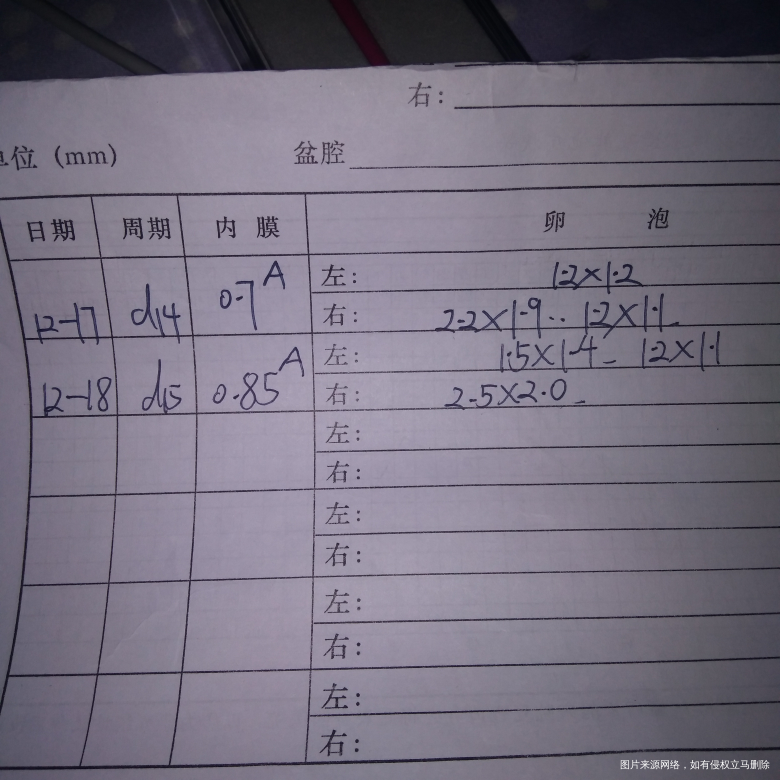 右:
位 (mm) 盆腔
日期 周期 内膜 卵泡
12-17 d14 0.7A 左: 1.2×1.2
右: 2.2×1.9.. 1.2×1.1
12-18 d15 0.85A 左: 1.5×1.4 1.2×1.1
右: 2.5×2.0
左:
右:
左:
右:
左:
右:
左:
右:
图片来源网络，如有侵权立马删除